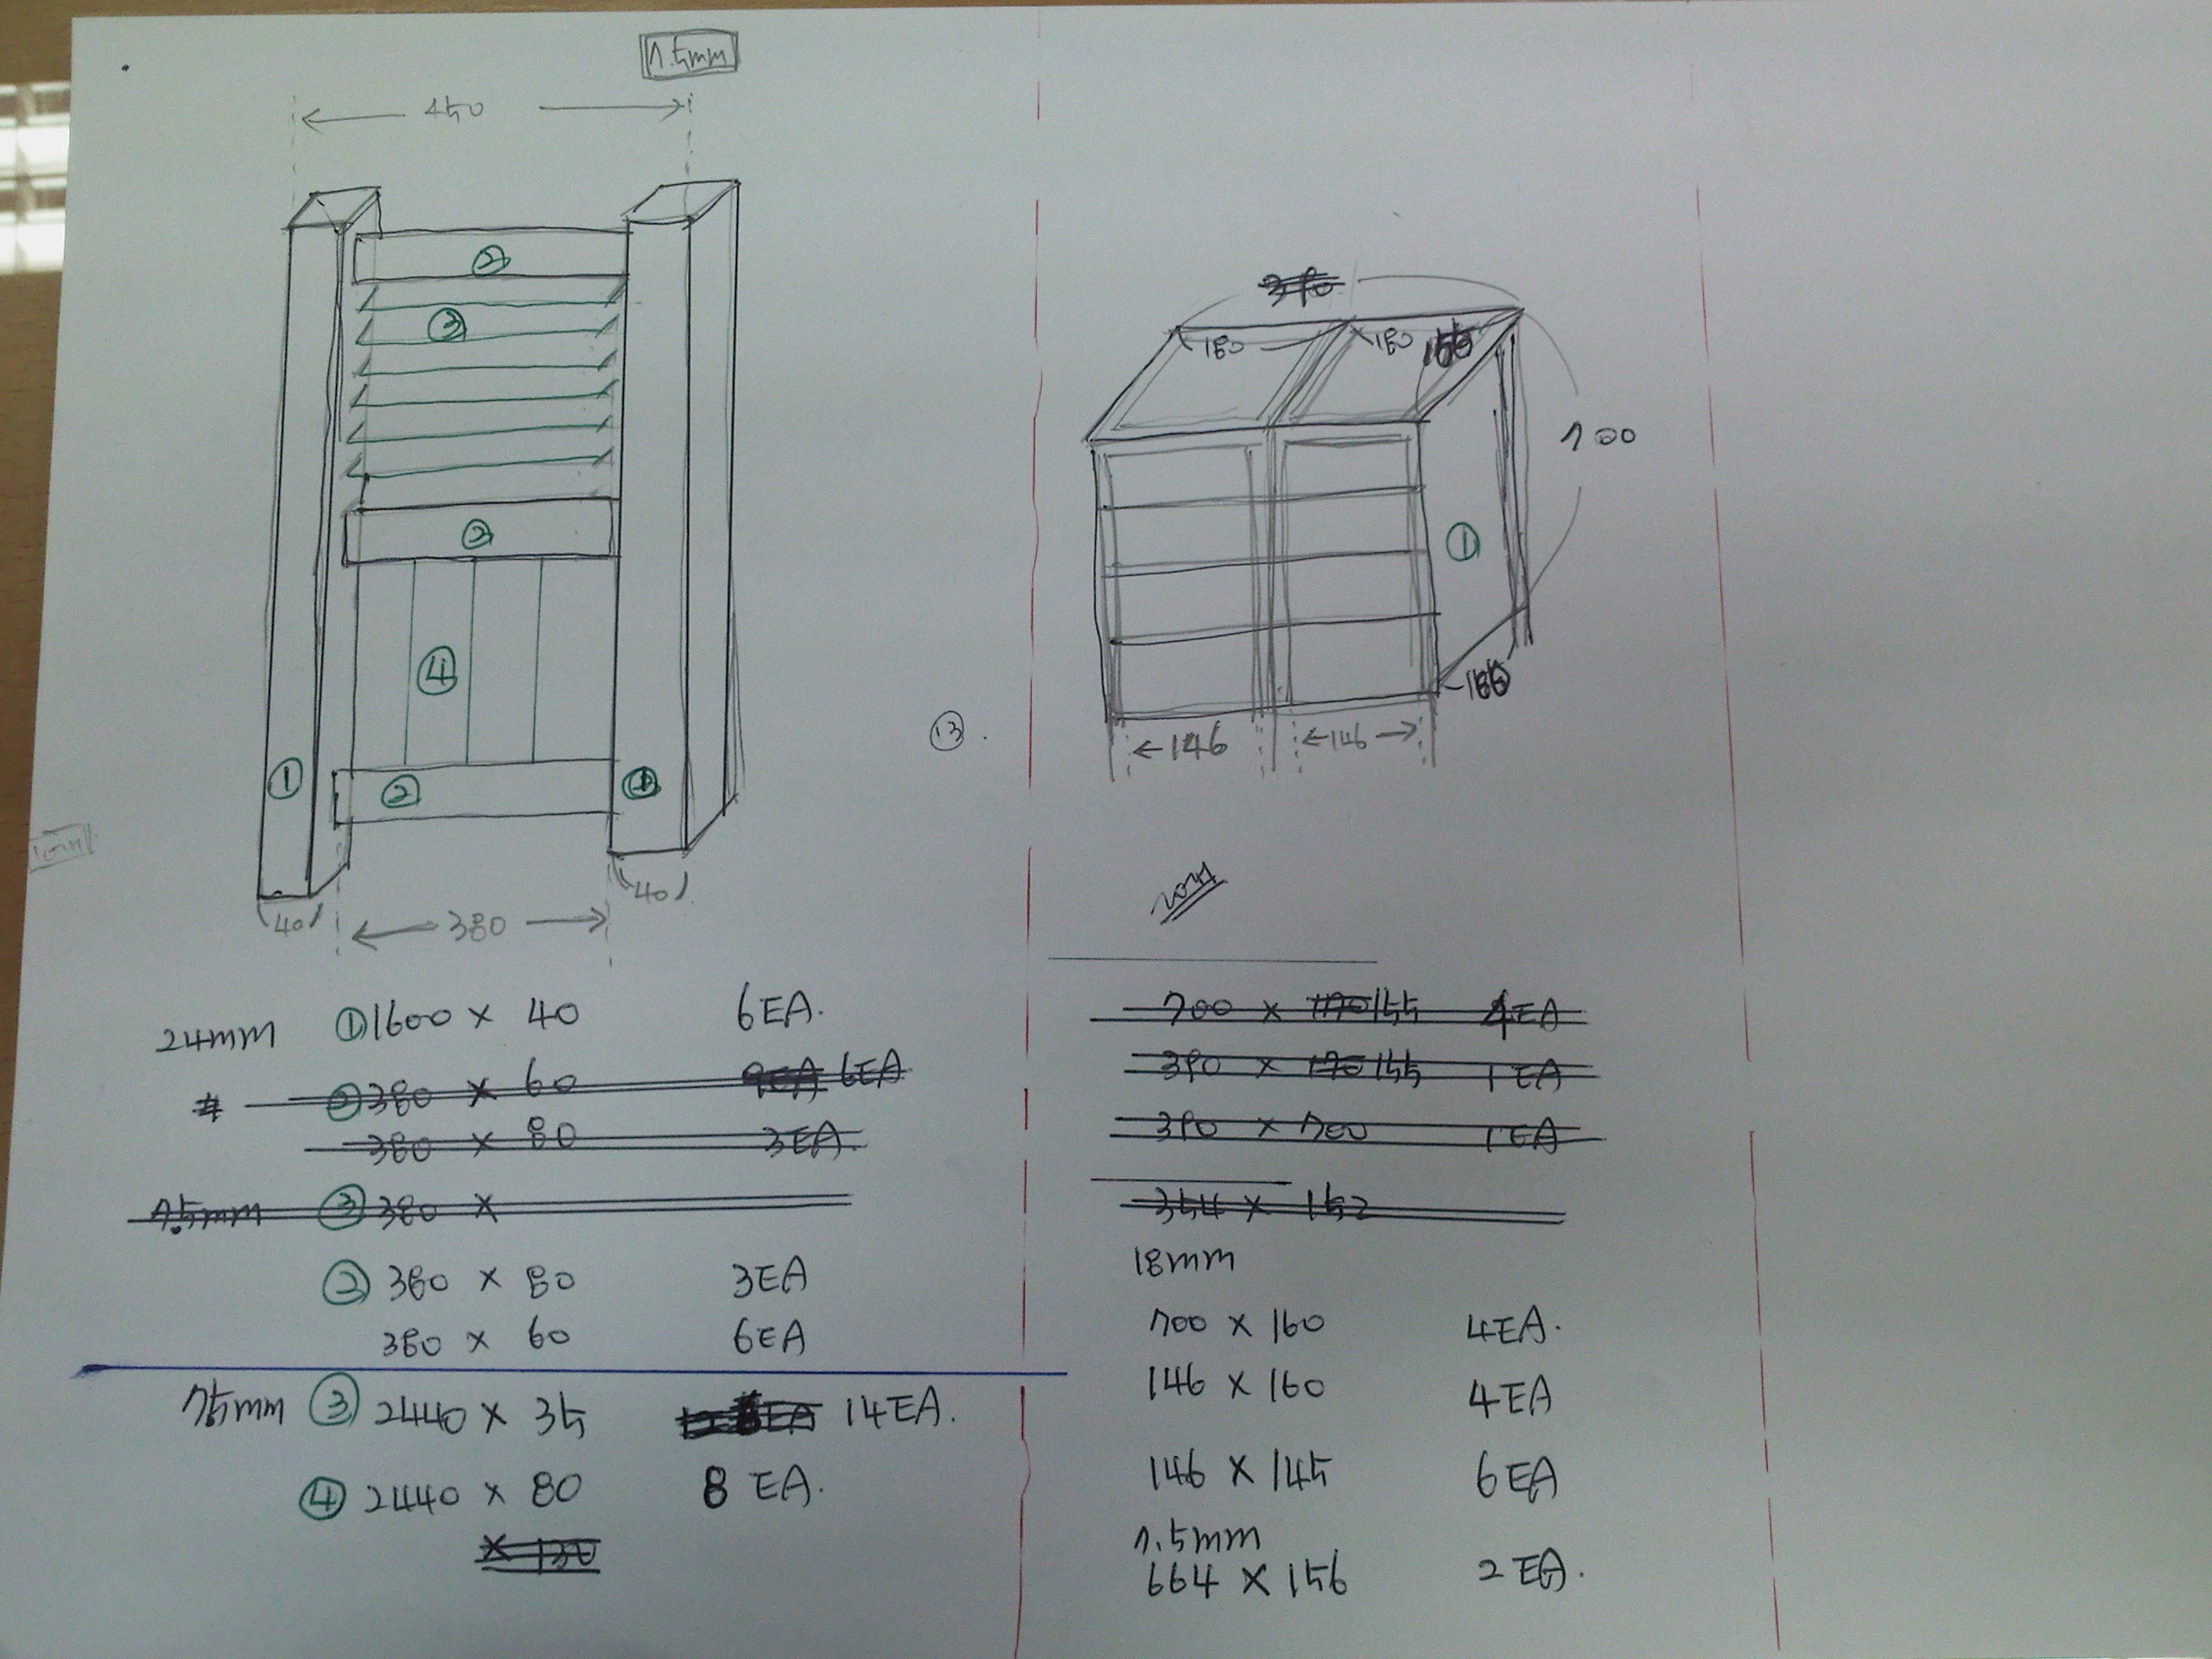 7.5mm
450
②
③
②
④
①
②
①
40
380
40
24mm ①1600 × 40 6EA.
②380 × 60 6EA
380 × 80 3EA.
7.5mm ③ 380 ×
② 380 × 80 3EA
380 × 60 6EA
7.5mm ③ 2440 × 35 14EA.
④ 2440 × 80 8 EA.
× 130
⑬.
390
180 180
700
①
146 146
700 × 170 155 4EA
390 × 170 155 1EA
390 × 700 1EA
354 × 152
18mm
700 × 160 4EA.
146 × 160 4EA
146 × 145 6EA
7.5mm
664 × 156 2EA.